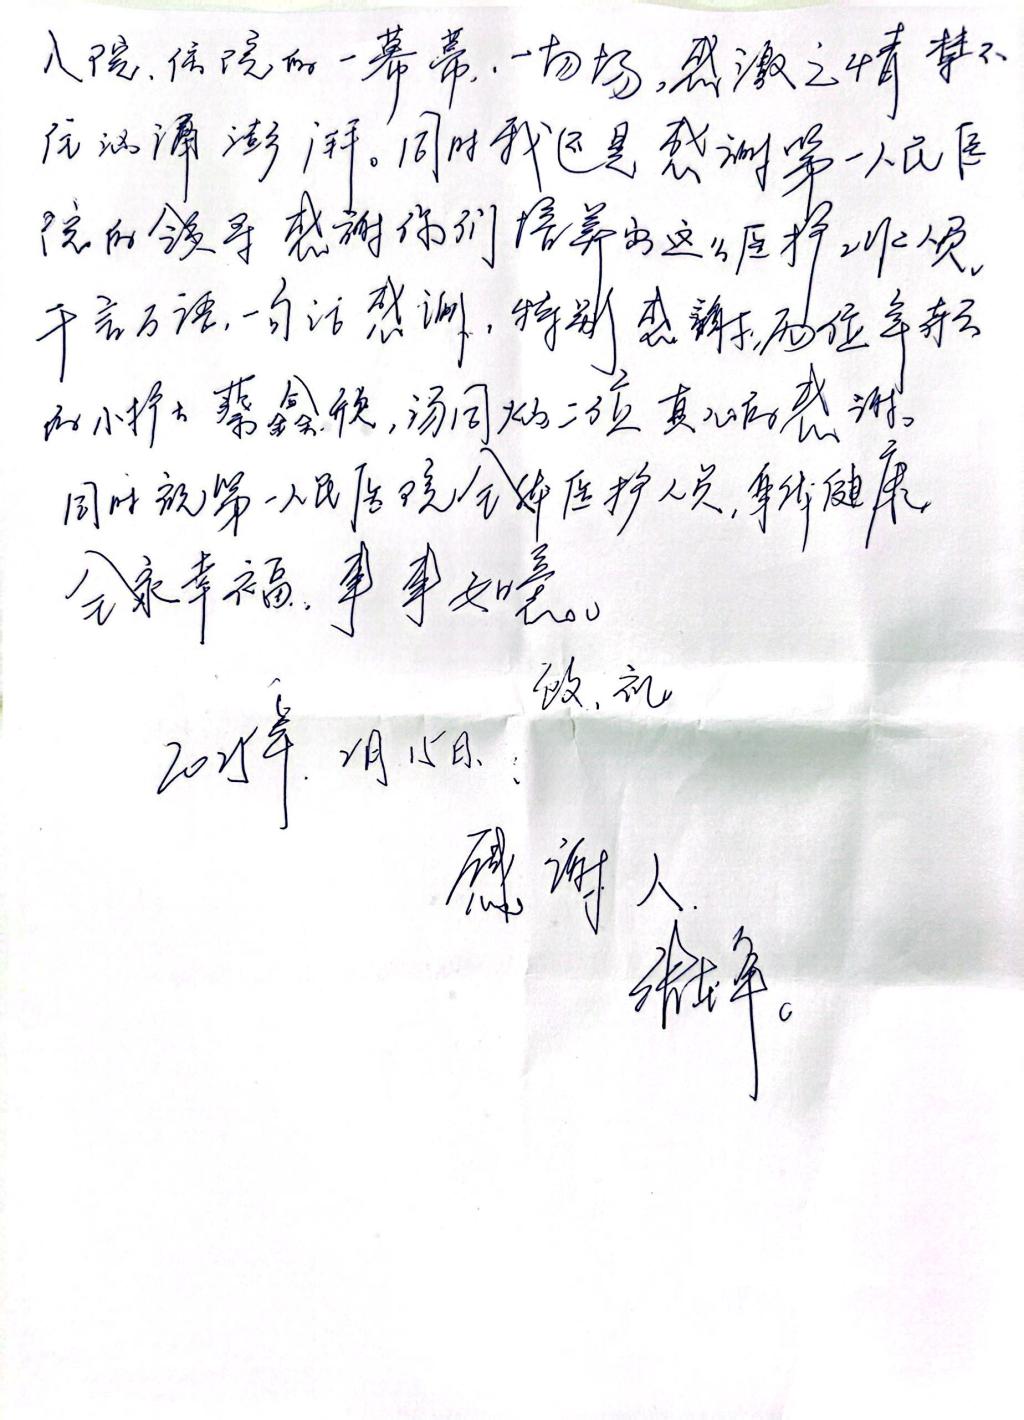 入院、住院的一幕幕、一场场,感激之情禁不
住汹涌澎湃。同时我还是感谢第一人民医
院的领导感谢你们培养出这么医护人员、
千言万语,一句话感谢,特别感谢,两位年轻
的小护士蔡鑫 ,汤同 二位真心的感谢。
同时祝第一人民医院全体医护人员,身体健康
全家幸福、事事如意。
致、礼
2025年.2月15日.
感谢人.